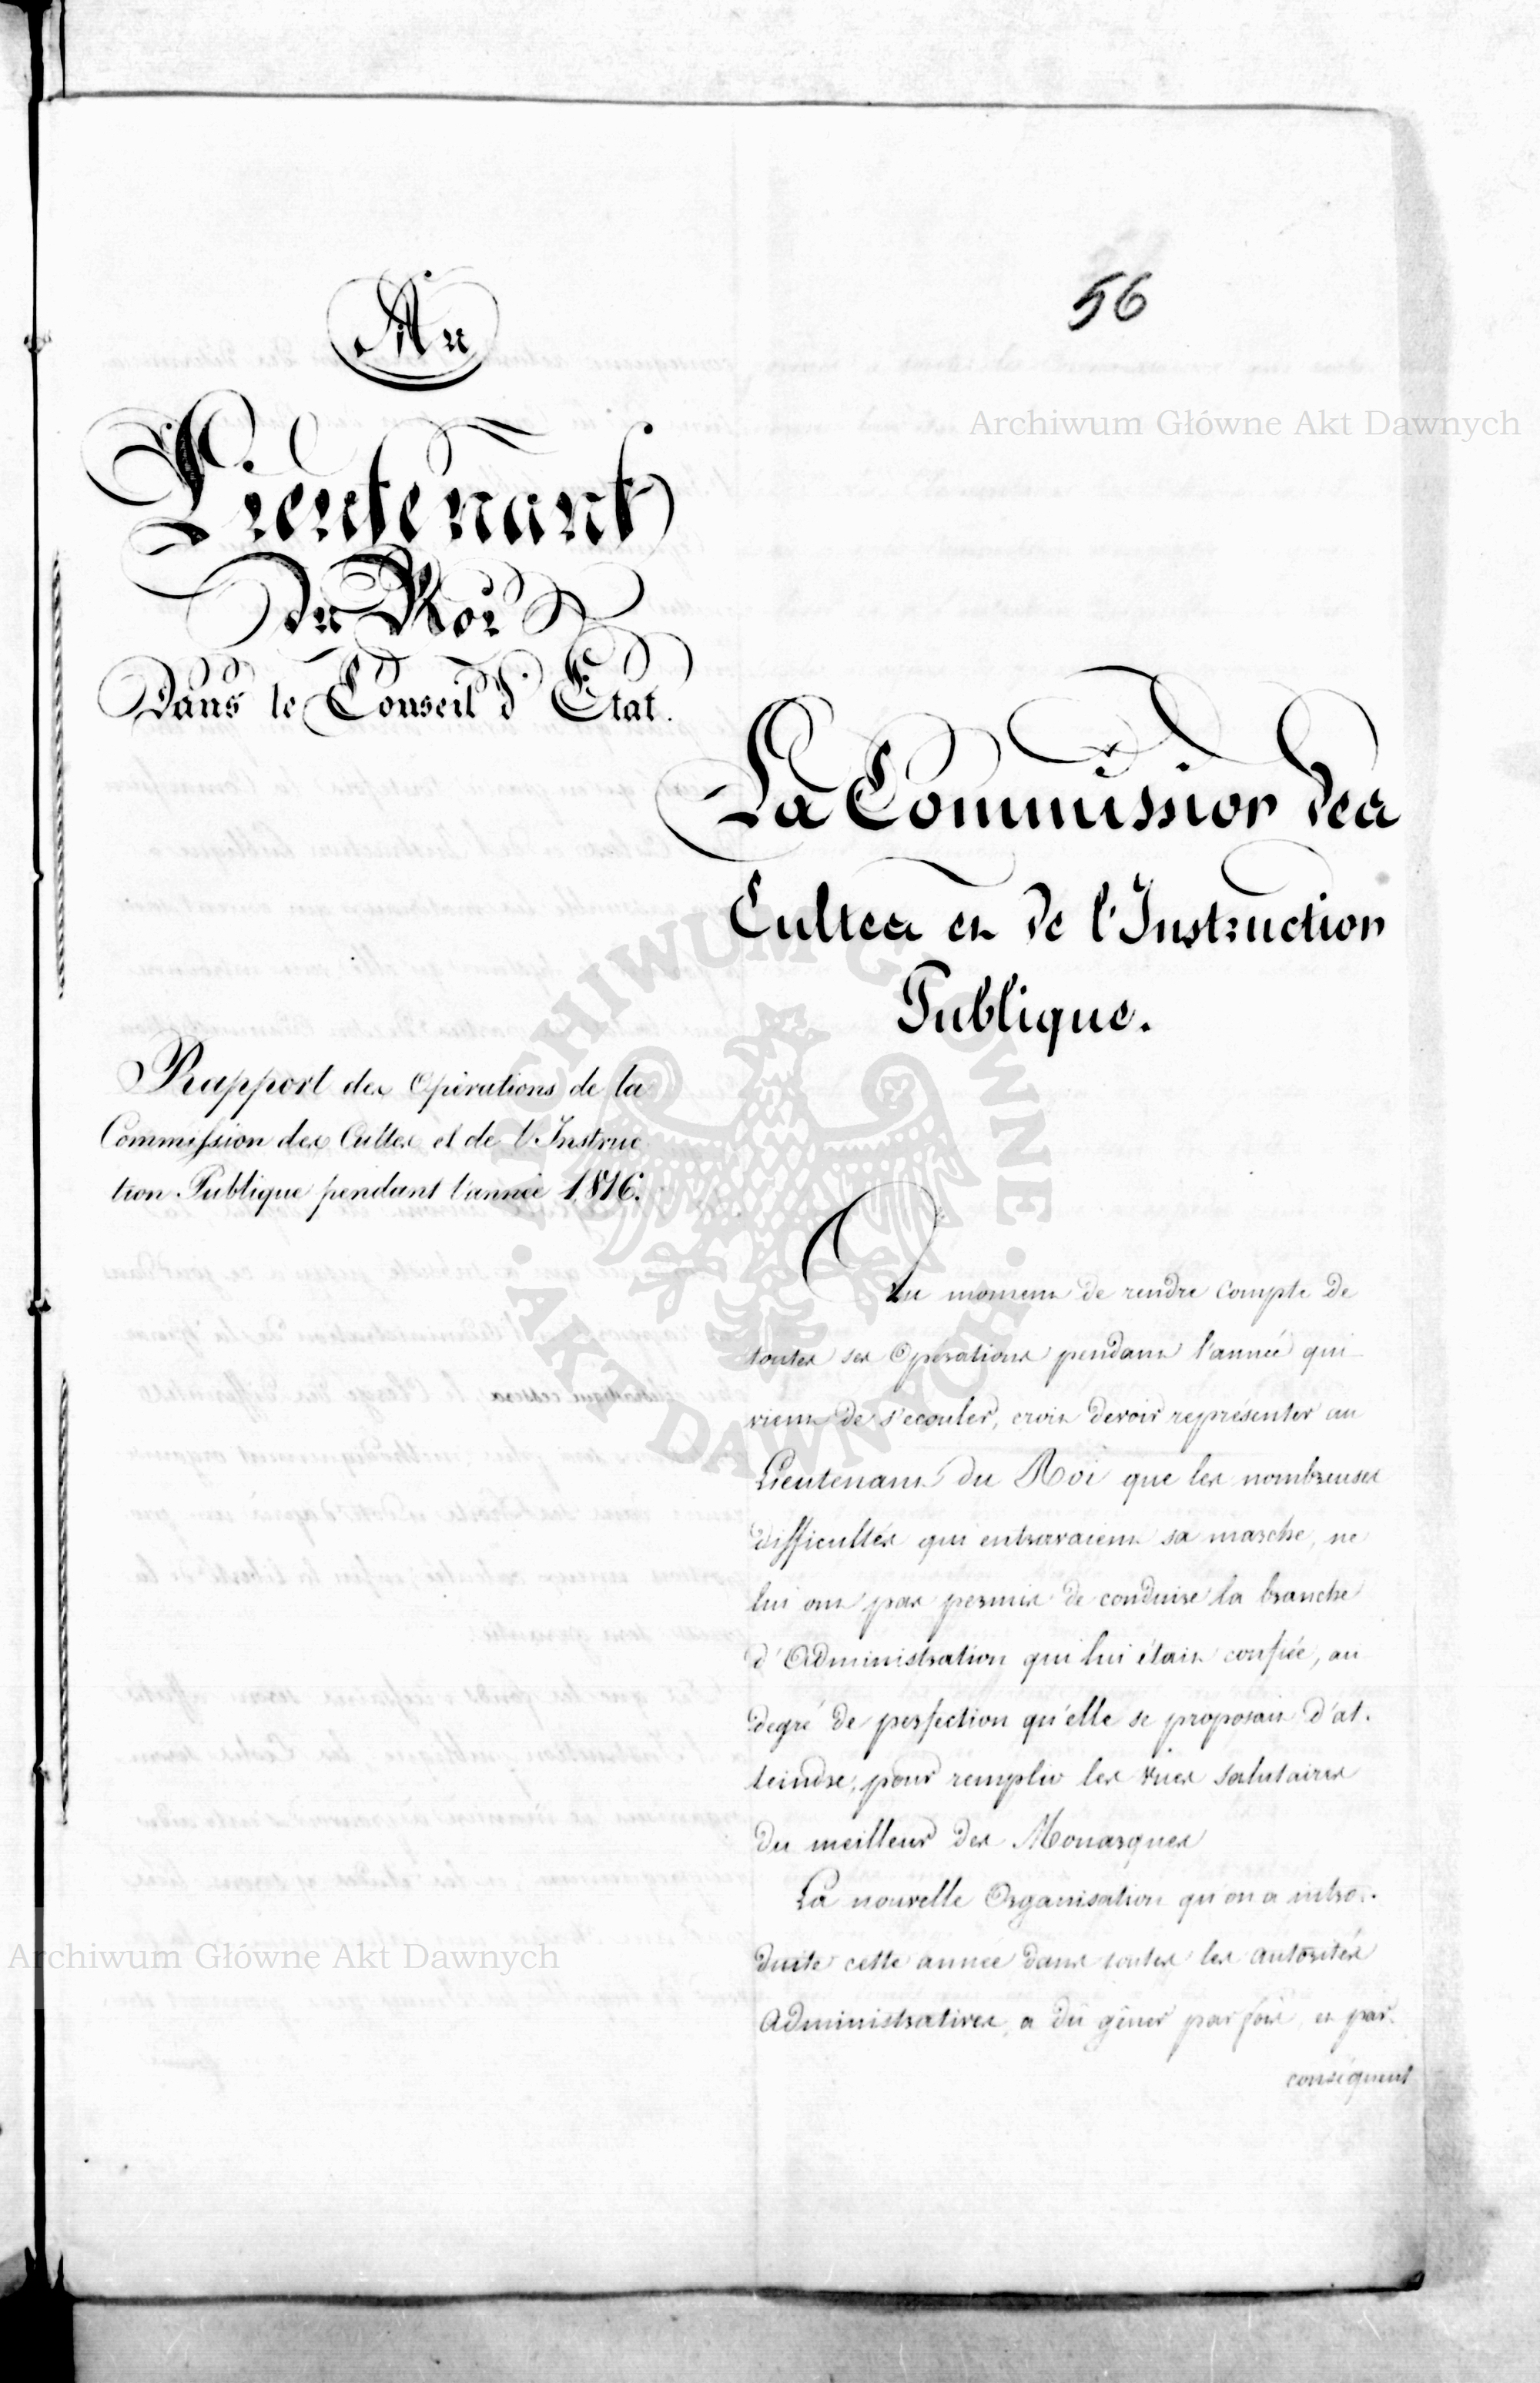 56
Au
Lieutenant
du Roi
Dans le Conseil d'Etat.
La Commission des
Cultes et de l'Instruction
Publique.
Rapport des Opérations de la
Commission des Cultes et de l'Instruc
tion Publique pendant l'année 1816.
Au moment de rendre compte de
toutes ses Opérations pendant l'année qui
vient de s'ecouler, croit devoir représenter au
Lieutenant du Roi que les nombreuses
difficultés qui entravaient sa marche, ne
lui ont pas permis de conduire la branche
d'Administration qui lui était confiée, au
degré de perfection qu'elle se proposait d'at.
teindre, pour remplir les vues salutaires
du meilleur des Monarques
La nouvelle Organisation qu'on a intro.
duite cette année dans toutes les autorités
Administratives, a dû gêner par fois, et par
conséquent
Archiwum Główne Akt Dawnych
Archiwum Główne Akt Dawnych
ARCHIWUM GŁÓWNE · AKT DAWNYCH ·